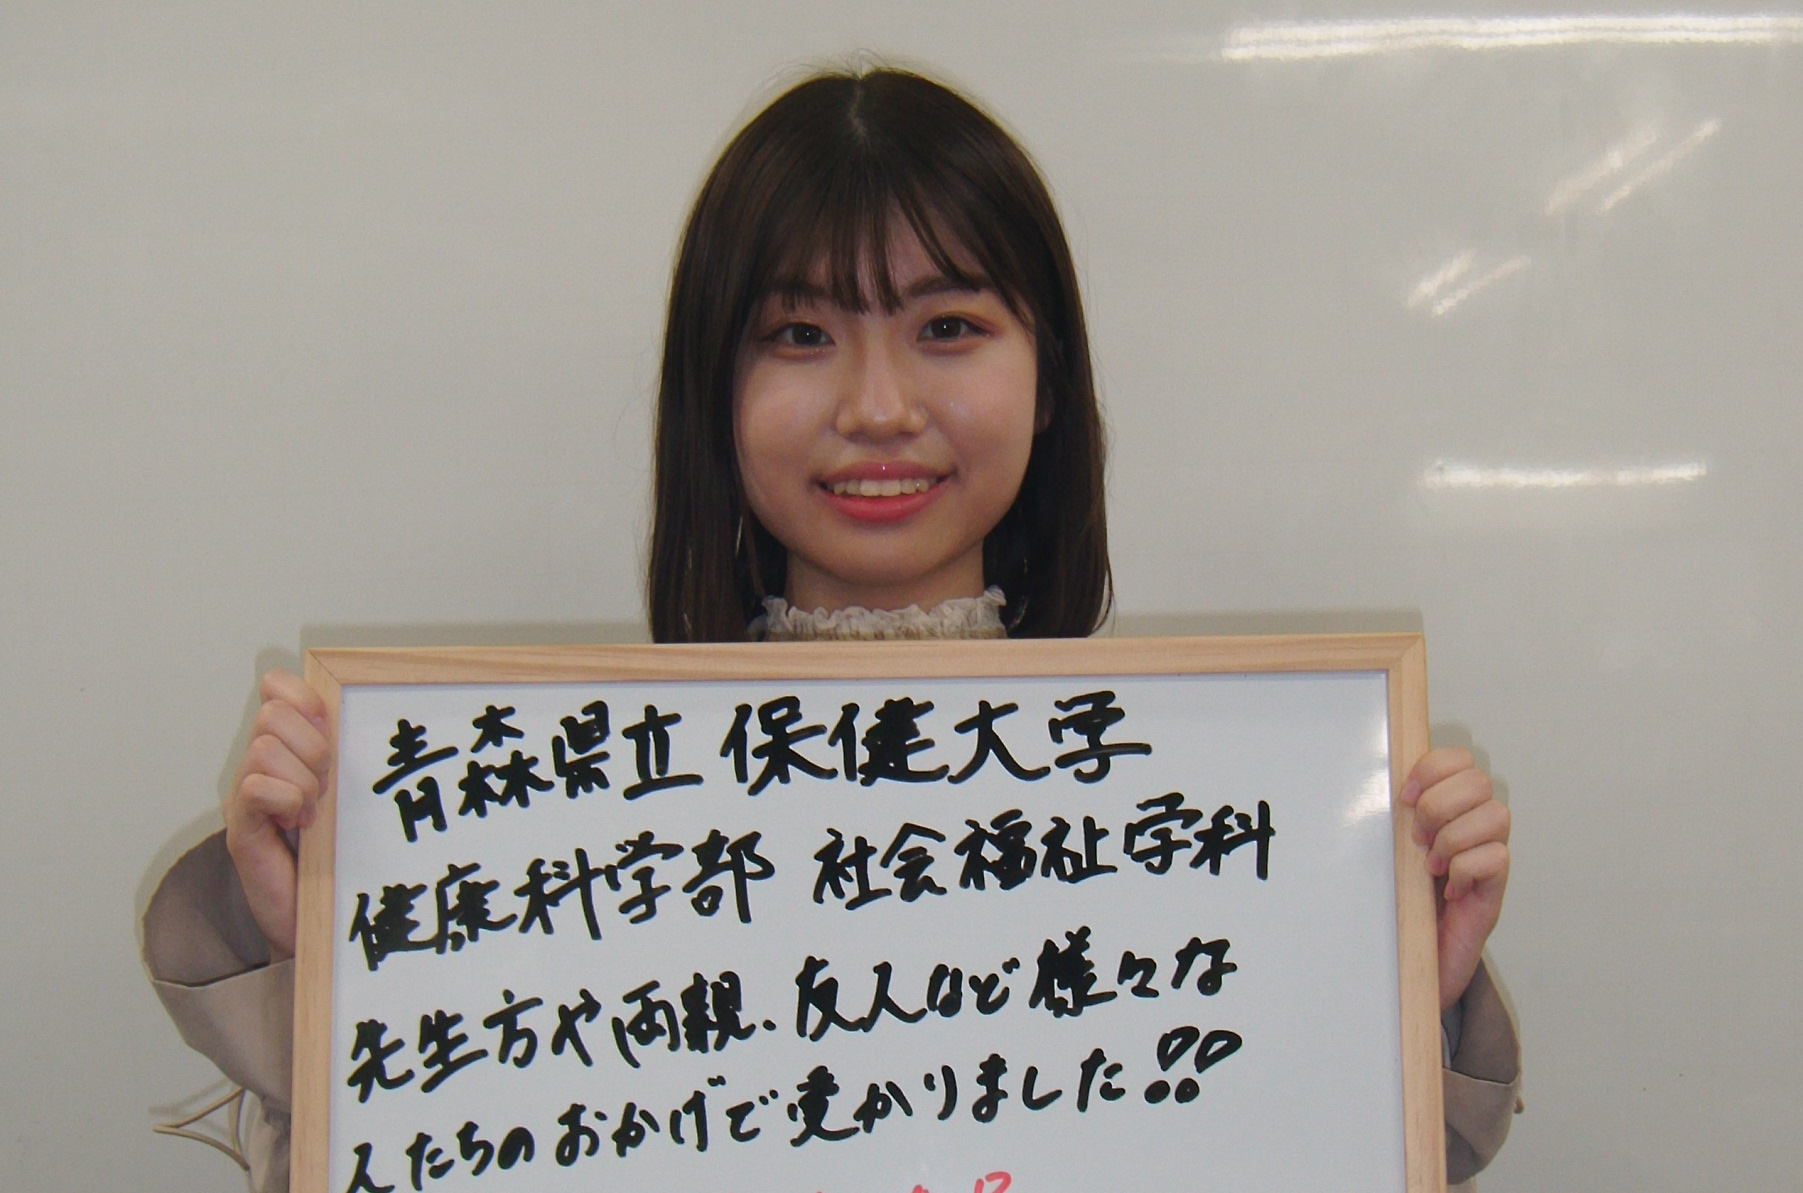 青森県立 保健大学
健康科学部 社会福祉学科
先生方や両親、友人など様々な
人たちのおかげで受かりました!!